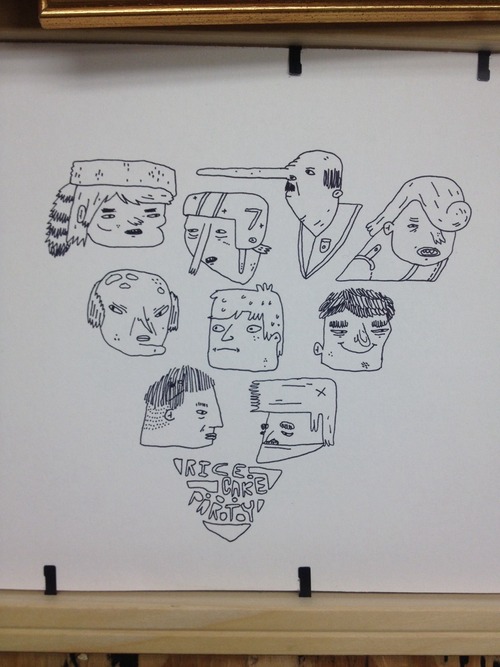 7
RICE
CAKE
PARTY